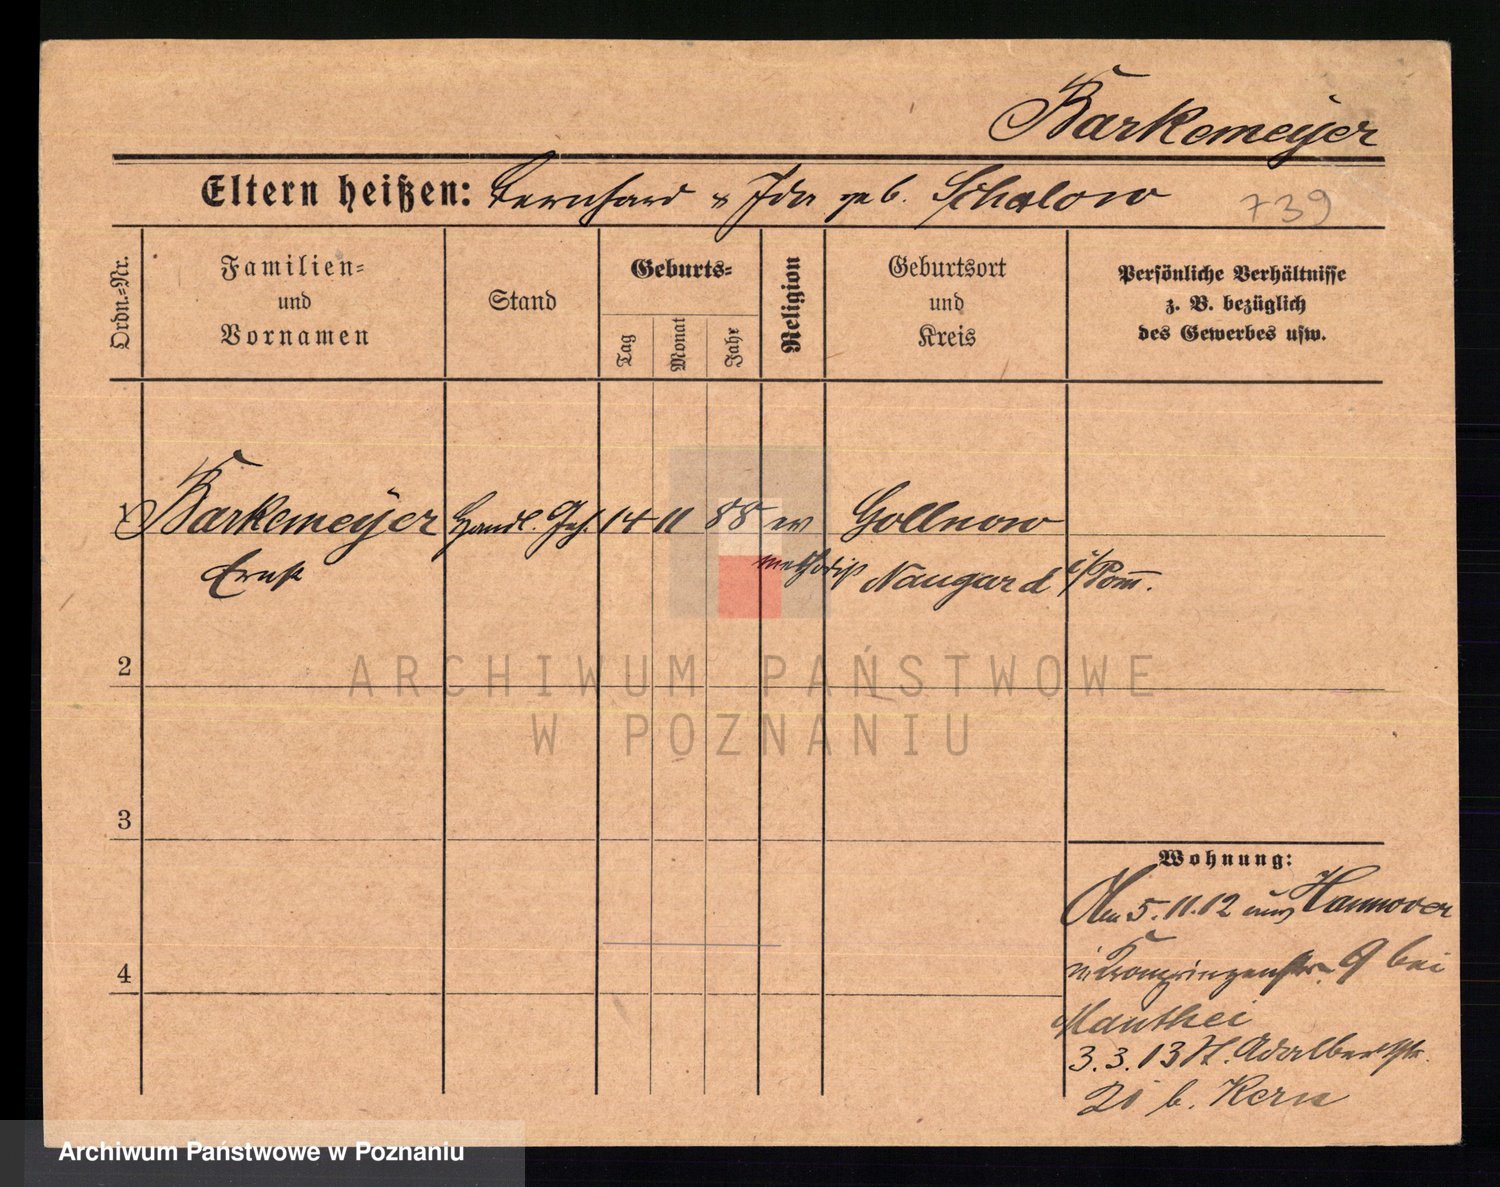 Barkemeyer
Eltern heißen: Bernhard u Ida geb. Schalow
739
Ordn.-Nr.
Familien-
und
Vornamen
Stand
Geburts-
Tag
Monat
Jahr
Religion
Geburtsort
und
Kreis
Persönliche Verhältnisse
z. B. bezüglich
des Gewerbes usw.
1 Barkemeyer Handl. Geh. 14 11 88 ev Gollnow
Ernst methodist Naugard i/Pom̅.
2
3
4
Wohnung:
Am 5.11.12 aus Hannover
n. Kronprinzenstr. 9 bei
Manthei
3.3.13 St. Adalbertstr.
21 b. Kern
ARCHIWUM PAŃSTWOWE
W POZNANIU
Archiwum Państwowe w Poznaniu